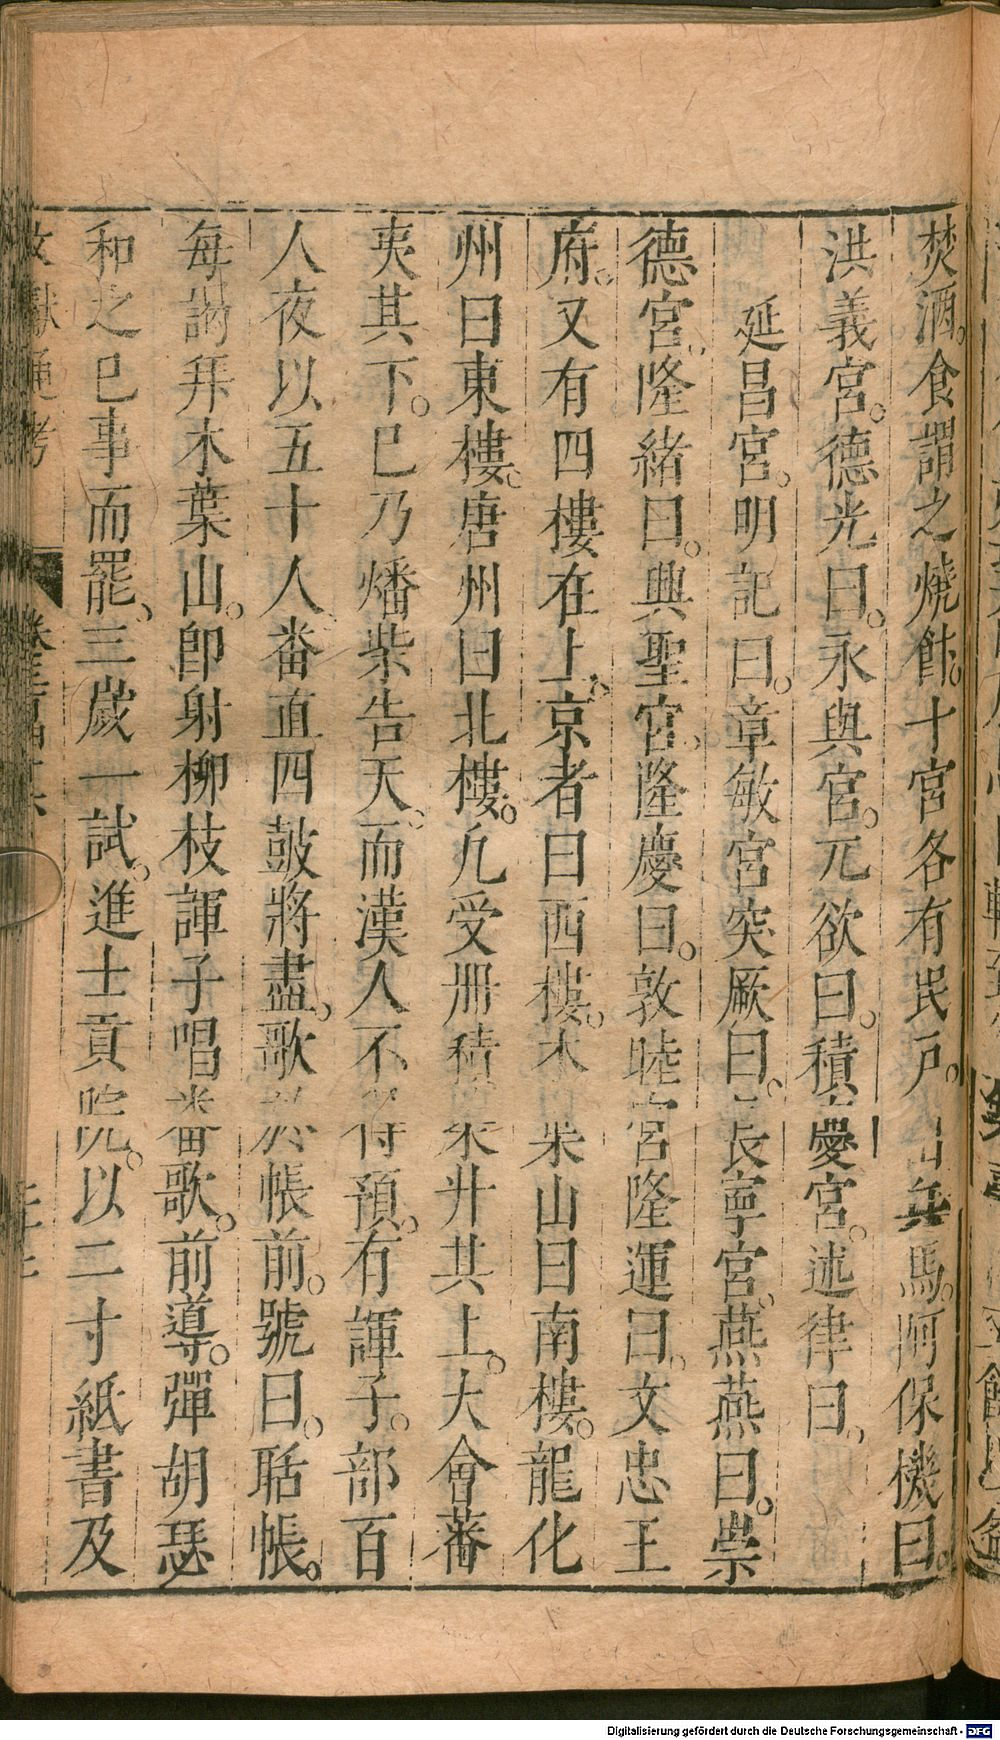 焚酒食謂之燒飰十宮各有民戶出兵馬阿保機曰
洪義宮德光曰永與宮兀欲曰積慶宮述律曰
延昌宮明記曰章敏宮突厥曰長寧宮燕燕曰崇
德宮隆緒曰興聖宮隆慶曰敦睦宮隆運曰文忠王
府又有四樓在上京者曰西樓木葉山曰南樓龍化
州曰東樓唐州曰北樓凡受册積柴升其上大會蕃
夷其下已乃燔柴告天而漢人不得預有諢子部百
人夜以五十人番直四鼓將盡歌於帳前號曰聒帳
每謁拜木葉山卽射柳枝諢子唱番歌前導彈胡瑟
和之已事而罷三歲一試進士貢院以二寸紙書及
Digitalisierung gefördert durch die Deutsche Forschungsgemeinschaft - DFG